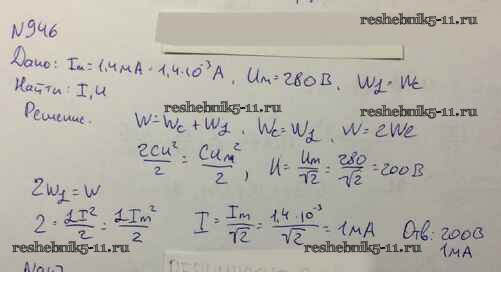 N946
reshebnik5-11.ru
Дано: Im = 1,4мА = 1,4·10⁻³А, Um = 280В, WL = Wc
Найти: I, U
reshebnik5-11.ru reshebnik5-11.ru
Решение. W = Wc + WL, Wc = WL, W = 2Wc
2CU²/2 = CUm²/2, U = Um/√2 = 280/√2 = 200В
reshebnik5-11.ru
2WL = W
2 = LI²/2 = LIm²/2 I = Im/√2 = 1,4·10⁻³/√2 = 1мА Отв: 200В
1мА
reshebnik5-11.ru reshebnik5-11.ru